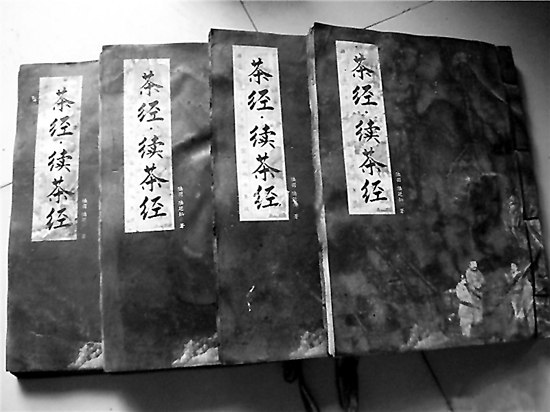 茶经·续茶经
茶经·续茶经
著
茶经·续茶经
茶经·续茶经
著